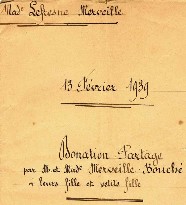 Made Lefresne Merveille
13 Février 1939
Donation Partage
par M. et Made Merveille-Bouché
à leurs fille et petite fille